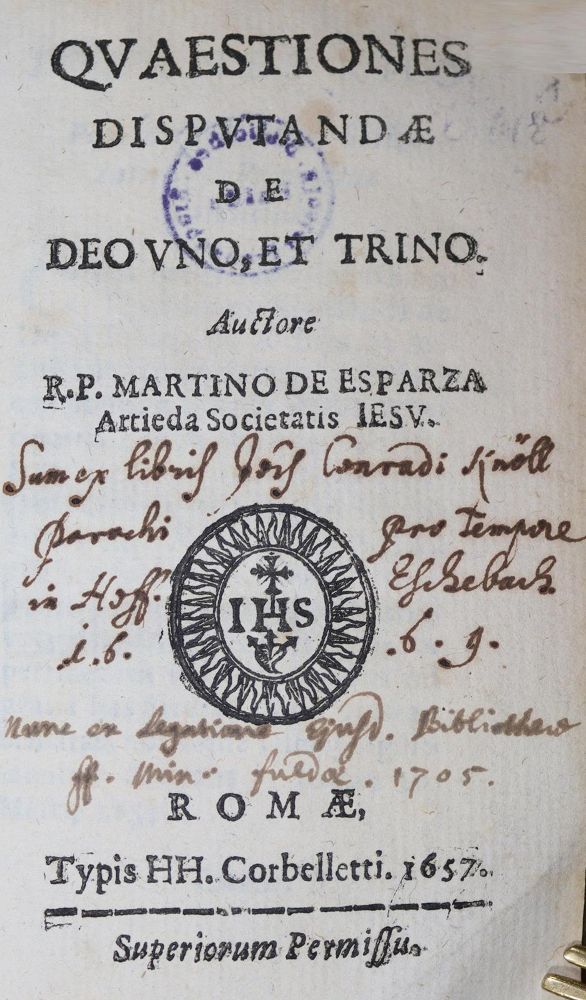 QVAESTIONES
DISPVTANDÆ
DE
DEO VNO, ET TRINO.
Auctore
R.P. MARTINO DE ESPARZA
Artieda Societatis IESV.
Sum ex libris Joĩs Conradi Knöll
Parochi pro tempore
in Heff. Eschebach
IHS
1.6. .6.9.
Nunc ex Legatione Ejusd. Bibliothecæ
ff. Min. fuldæ. 1705.
ROMÆ,
Typis HH. Corbelletti. 1657.
Superiorum Permissu.